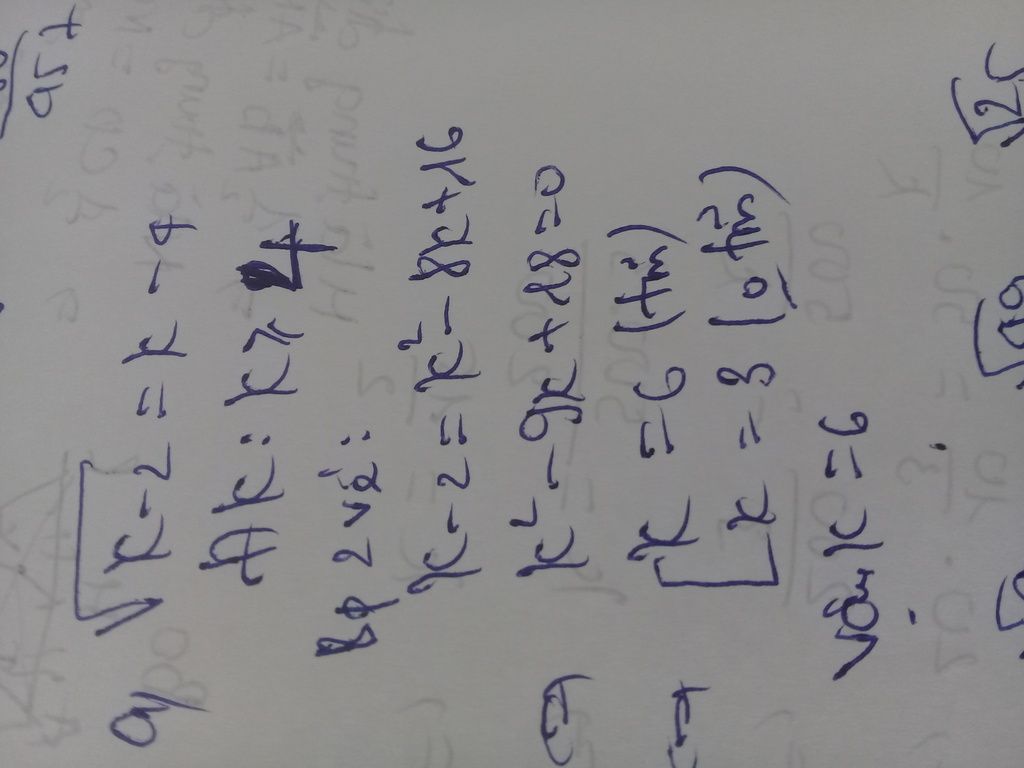 a) √x-2 = x - 4
ĐK: x ⩾ 4
Bp 2 vế:
x - 2 = x² - 8x + 16
⇔ x² - 9x + 18 = 0
⇔ [ x = 6 (tm)
x = 3 (o tm)
vậy x = 6
957
√25
√49